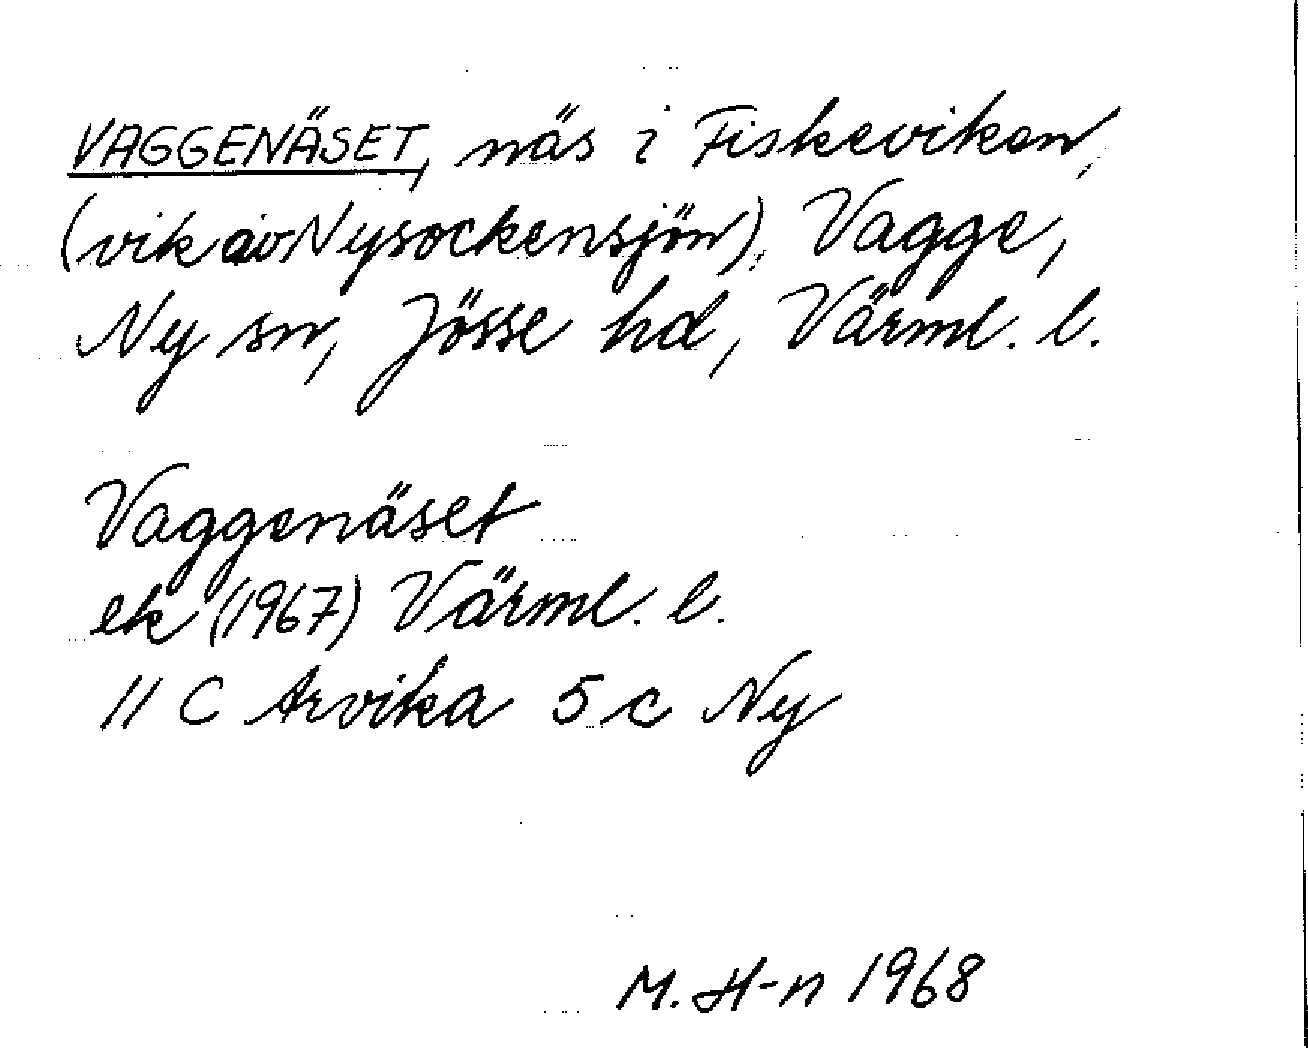 VAGGENÄSET, näs i Fiskeviken,
(vik av Nysockensjön), Vagge,
Ny sn, Jösse hd, Värml. l.
Vaggenäset
ek (1967) Värml. l.
11 C Arvika 5 c Ny
M. H-n 1968